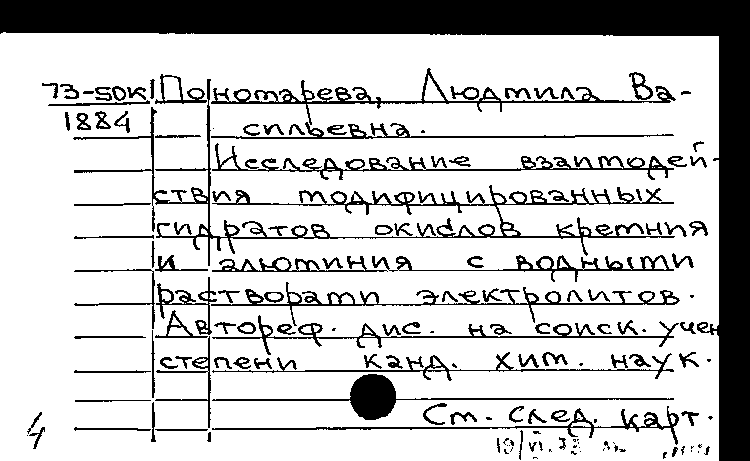 73-50к Пономарева, Людмила Ва-
1884 сильевна.
Исследование взаимодей-
ствия модифицированных
гидратов окислов кремния
и алюминия с водными
растворами электролитов.
Автореф. дис. на соиск. учен
степени канд. хим. наук.
См. след. карт.
4
19/VI.73